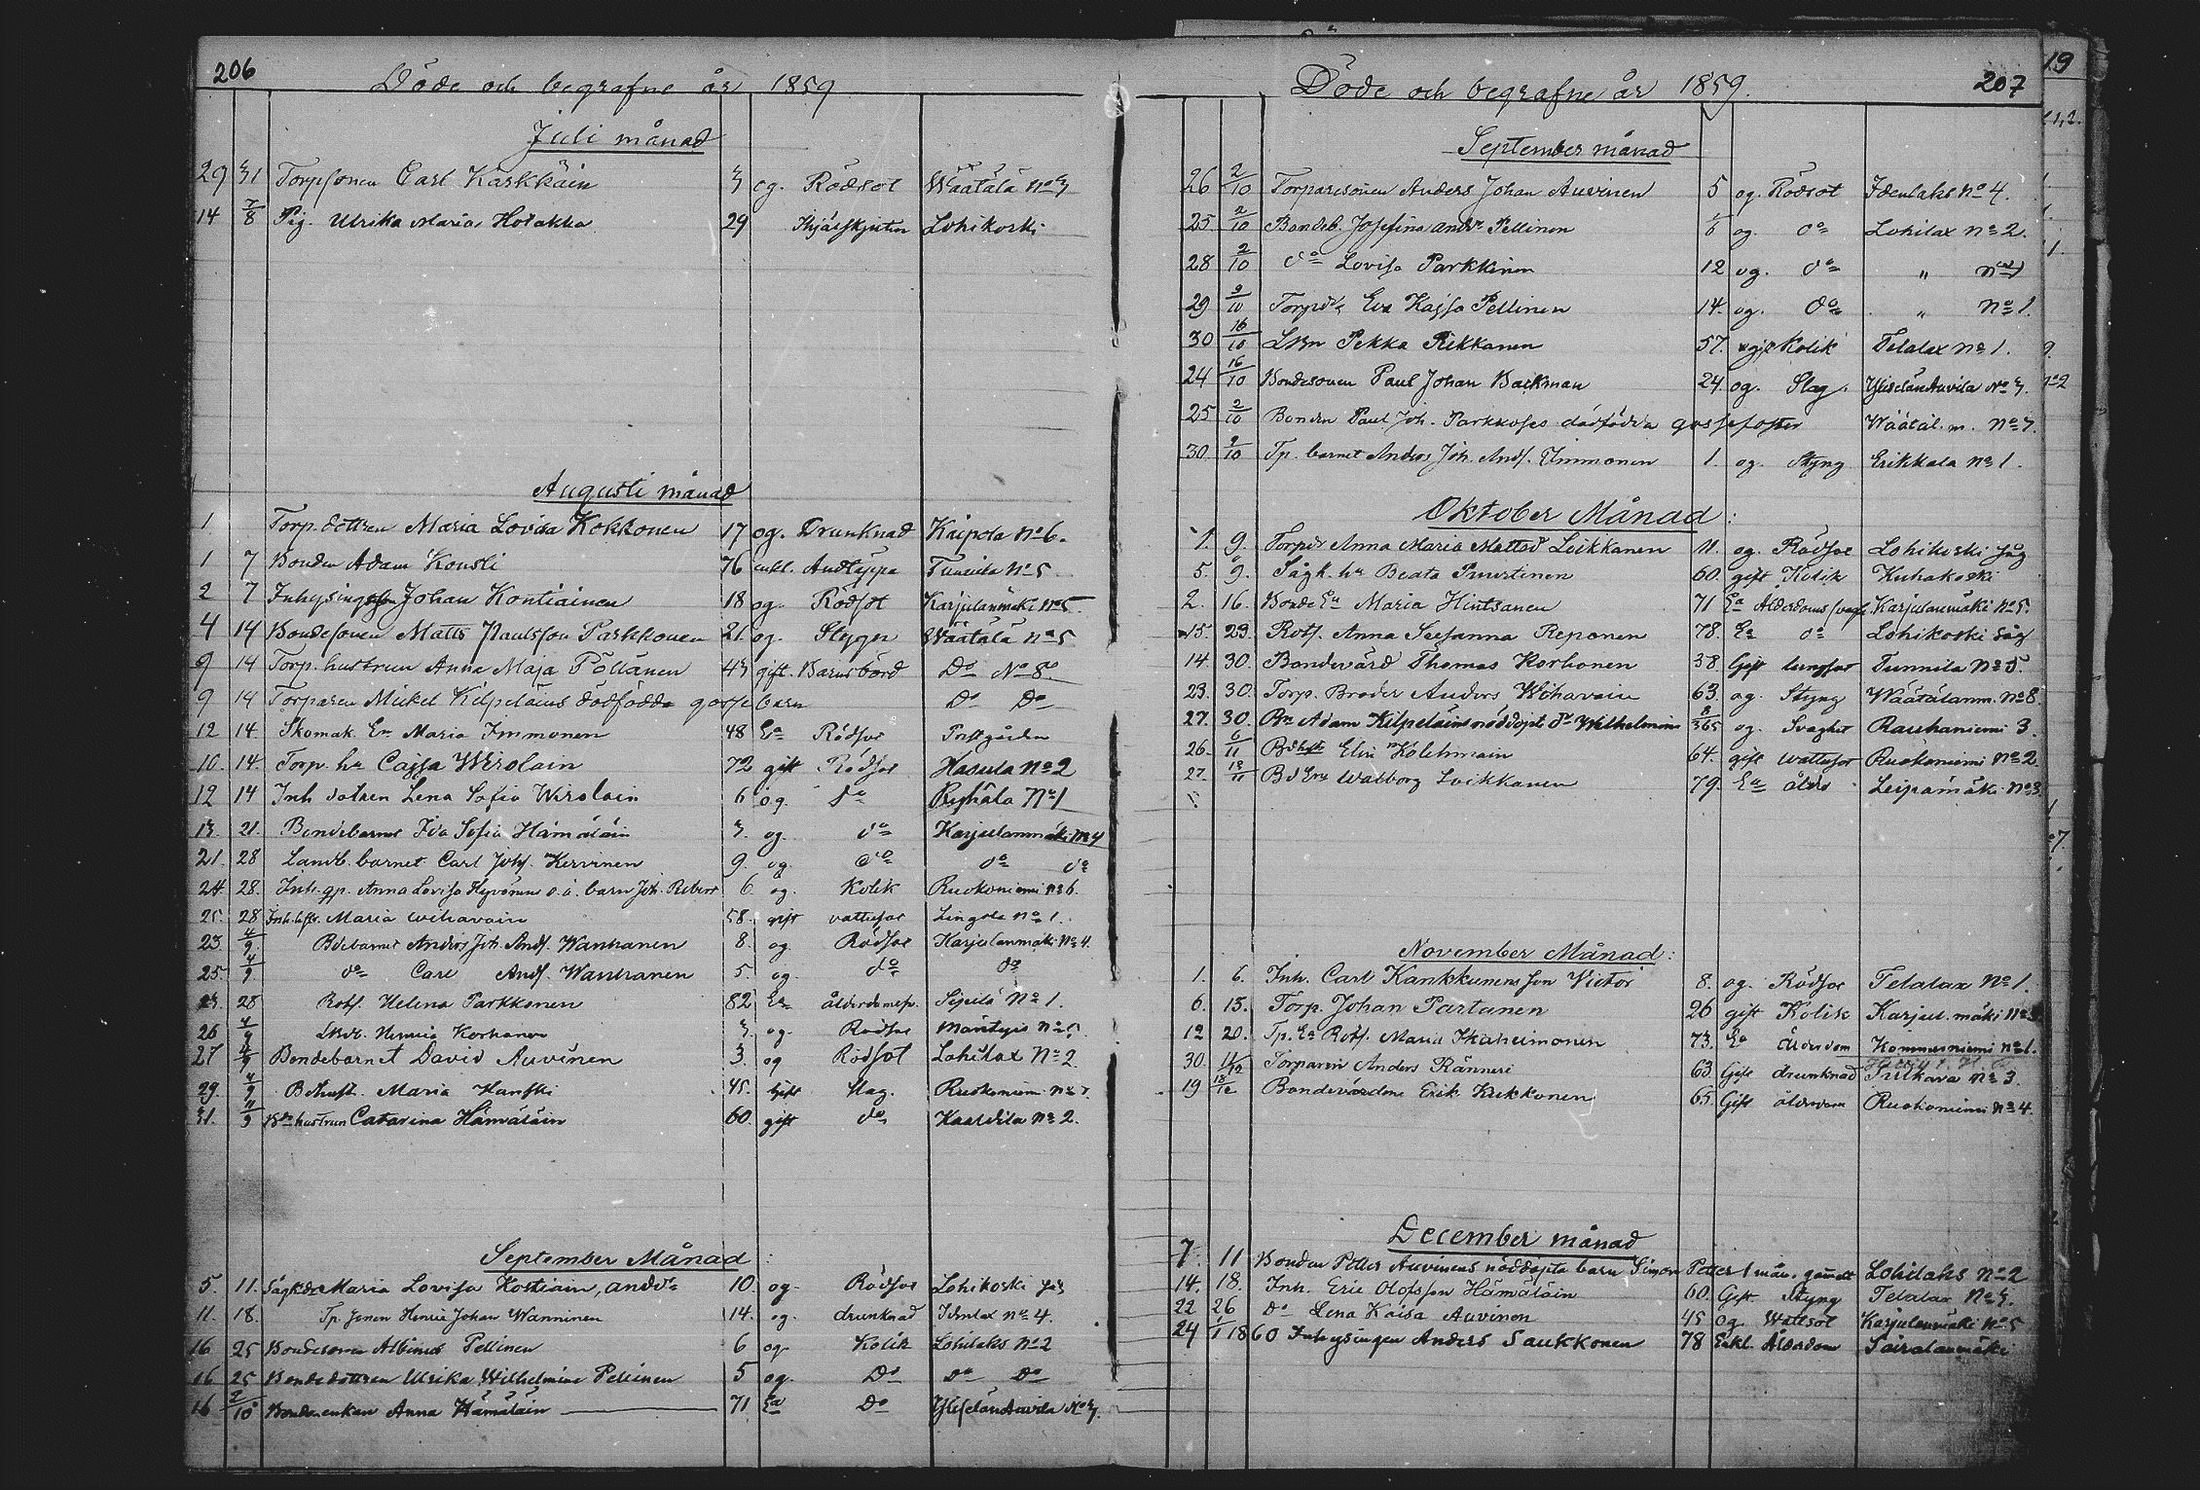 206
Döde och begrafne år 1859
Juli månad
29 31 Torpsonen Carl Kärkkäin 3 og. Rödsot Wäätälä No 3
14 7/8 Pig. Ulrika Maria Hotakka 29 Lohikoski
Augusti månad
1 Torp. dottren Maria Lovisa Kokkonen 17 og. Drunknad Kaipola No 6.
1 7 Bonden Adam Kousti 76 enkl. Andtäppa Tunnila No 5
2 7 Inhysing Johan Kontiainen 18 og. Rödsot Karjulanmäki No 5.
4 14 Bondesonen Matts Paulsson Parkkonen 21 og. Slag Wäätälä No 5
9 14 Torp. hustrun Anna Maja Pöllänen 43 gift. Barnsbörd Do No 8
9 14 Torparen Mickel Kilpeläins dödfödde gosse barn Do Do
12 14 Skomak. En Maria Immonen 48 Ea Rödsot Prestgården
10. 14. Torp. hu Cajsa Wirolain 72 gift Rödsot Hasula No 2
12 14 Inh dotren Lena Sofia Wirolain 6 og. do Ryhälä No 1
13. 21. Bondebarnet Ida Sofia Hämäläin 3. og. do Karjulanmäki No 4
21. 28 Landb. barnet Carl Joh. Kervinen 9. og. do do do
24. 28. Inh. qp. Anna Lovisa Hyvönens o. ä. barn Joh. Robert 6. og. Kolik Ruokoniemi No 6.
25. 28 Inh. hst. Maria Wihavain 58. gift vattusot Lingola No 1.
23. 4/9. Bdebarnet Anders Joh. Ands. Wanhanen 8. og Rödsot Karjulanmäki No 4.
25. 4/9 do Carl Ands. Wanhanen 5. og do do
28 Rotf. Helena Parkkonen 82 Ea ålderdomsv. Sipilä No 1.
26 4/9 Korhonen 3. og. Rödsot Mäntyis No 5.
27 4/9 Bondebarnet David Auvinen 3. og Rödsot Lohilax No 2
29. 4/9 Bdhust. Maria Hanski 45. Gift Slag. Ruokoniemi No 7.
31. 11/9 Bdn hustrun Catarina Hämäläin 60. gift do Kaartila No 2.
September Månad:
5. 11. Sågkda Maria Lovisa Kostiain, andr 10. og. Rödsot Lohikoski såg
11. 18. Tp. sonen Henric Johan Wanninen 14. og. drunknad Idenlax No 4.
16 25 Bondesonen Albinus Pellinen 6 og Kolik Lohilaks No 2
16 25 Bondedottren Ulrika Wilhelmina Pellinen 5 og. Do Do Do
16 2/10 Bondeenkan Anna Hämäläin 71 Ea Do Yliselän Auvila No 3.
207
Döde och begrafne år 1859.
September månad
26 2/10 Torparesonen Anders Johan Auvinen 5 og. Rödsot Idenlaks No 4.
25 2/10 Bondeb. Josefina Andr Pellinen 6 og. do Lohilax No 2.
28 2/10 do Lovisa Parkkinen 12 og. do " No 1
29 9/10 Torpdr Eva Kajsa Pellinen 14. og. do " No 1.
30 16/10 Lbn Pekka Rikkanen 57. gift Kolik Telalax No 1.
24 16/10 Bondesonen Paul Johan Backman 24 og. Slag. Yliselän Auvila No 3.
25 2/10 Bonden Paul Joh. Parkkoses dödfödda gossefoster Wäätäl. m. No 7.
30. 9/10 Tp. barnet Anders Joh. Ands. Immonen 1. og. Styng Erikkala No 1.
Oktober Månad:
1. 9. Torpdr Anna Maria Mattsd Loikkanen 11. og. Rödsot Lohikoski såg
5. 9. Sågk. hu Beata Puustinen 60. gift Kolik Kuhakoski
2. 16. Bonde Ea Maria Hintsanen 71 Ea Ålderdomssvagh. Karjulanmäki No 5.
15. 23. Rotf. Anna Susanna Reponen 78. Ea do Lohikoski såg
14. 30. Bondevärd Thomas Korhonen 38. Gift lungsot Tunnila No 5.
23. 30. Torp. Broder Anders Wihavain 63. og. Styng Wäätälänm. No 8.
27. 30. Bn Adam Kilpeläins nöddöpt dr Wilhelmina 8/365 og. Svaghet Rauhaniemi 3.
26. 6/11 Bdhust. Elin Kolehmain 64. gift wattusot Ruokoniemi No 2
27. 13/11 Bd Enk Walborg Loikkanen 79. Ea ålderd Leipämäki No 3.
November Månad:
1. 6. Inh. Carl Kankkunens son Victor 8. og. Rödsot Telalax No 1.
6. 13. Torp. Johan Partanen 26 gift Kolik Karjul. mäki No 3
12 20. Tp. Ea Rotf. Maria Ikäheimonen 73. Ea Ålderdom Kommerniemi No 1.
30. 11/12 Torparen Anders Ränneri 63. Gift drunknad Tulkava No 3.
19 18/12 Bondevärden Erik Kukkonen 65. Gift ålderdom Ruokoniemi No 4.
December månad
7. 11 Bonden Petter Auvinens nöddöpta barn Simon Petter 1 mån. gamalt Lohilaks No 2
14. 18. Inh. Eric Olofsson Hämäläin 60. Gift Styng Telalax No 3.
22 26 Do Lena Kaisa Auvinen 45 og. Wattsot Karjulanmäki No 5
24 1/1 1860 Inhysingen Anders Saukkonen 78 Enkl. Ålderdom Pairalanmäki
19